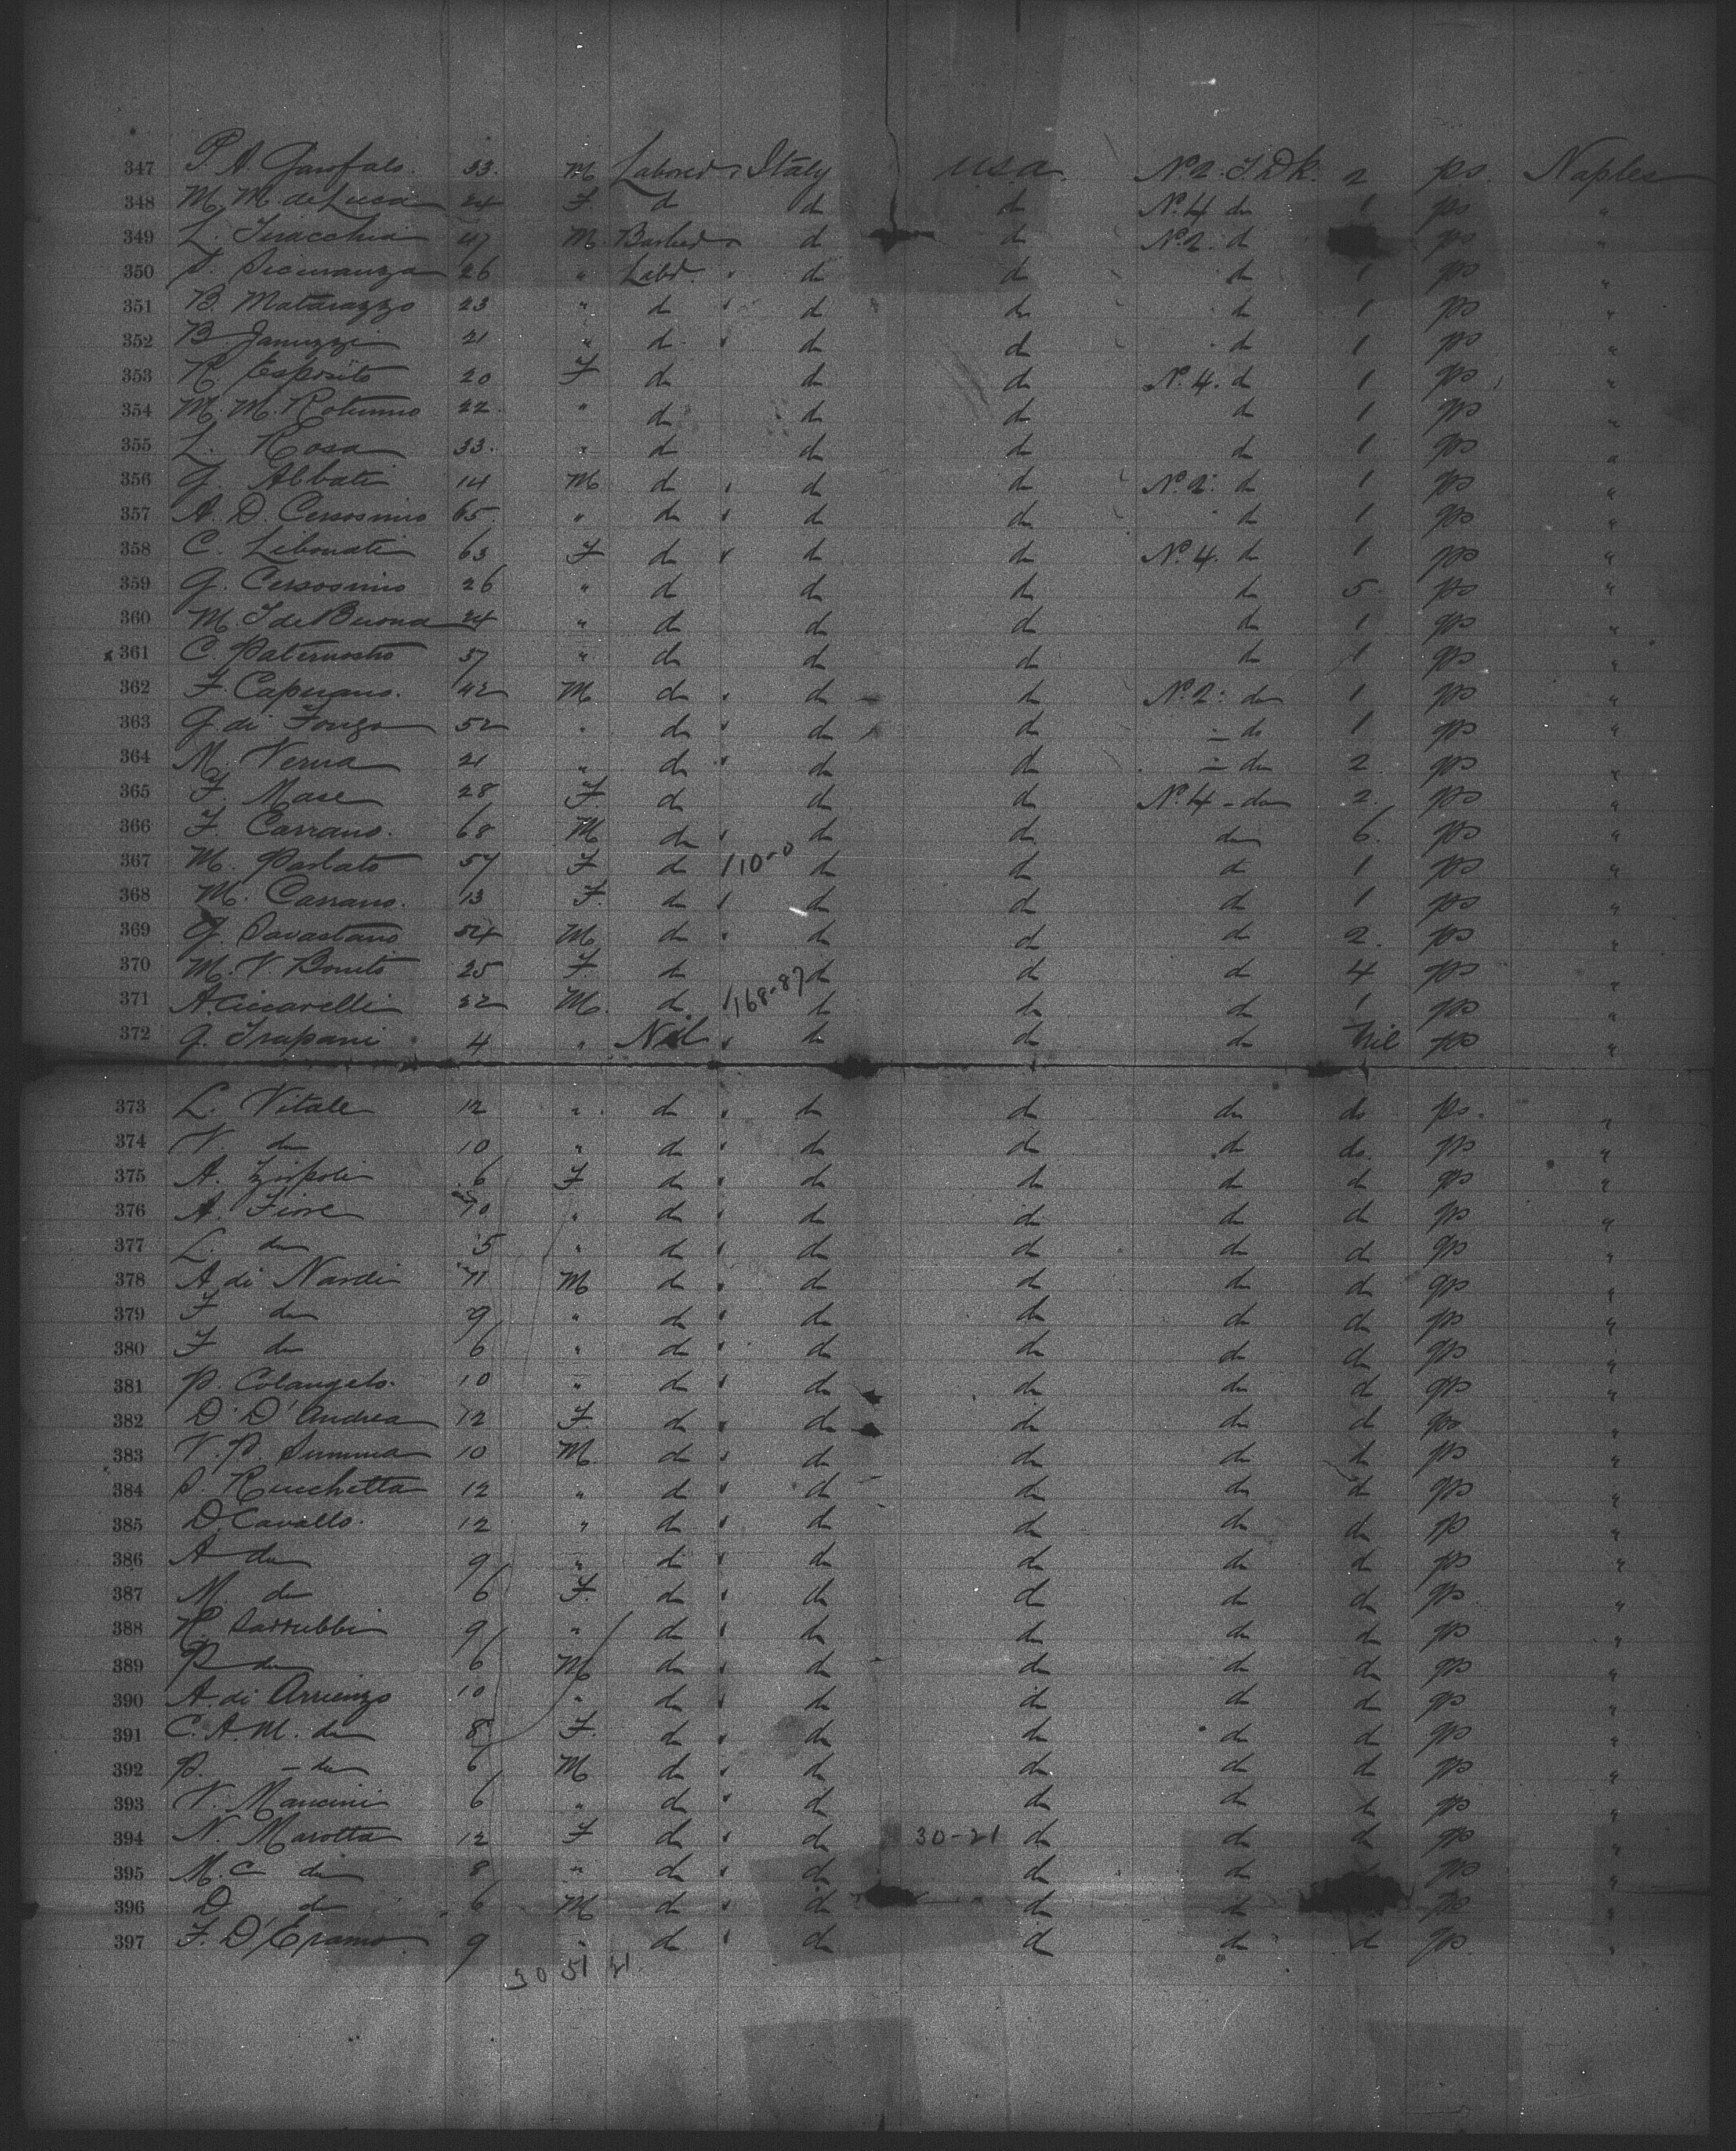 347 P. A. Garofalo. 33. M Laborer Italy U.S.A. No 2. T. Dk. 2 ps. Naples
348 M. M. de Luca 24 F. d d d No 4 do 1 ps "
349 L. 47 M. Barber d d No 2. d ps "
350 26 " Labr. d d d 1 ps "
351 B. Matarazzo 23 " d d d d 1 ps "
352 B. Januzzi 21 " d d d d 1 ps "
353 R. Esposito 20 F d d d No 4. d 1 ps "
354 M. M. Rotunno 22. " d d d d 1 ps "
355 L. Rosa 33. " d d d d 1 ps "
356 G. Abbate 14 M d d d No 2. d 1 ps "
357 A. D. Cersosimo 65 " d d d d 1 ps "
358 C. Libonati 63 F d d d No 4. d 1 ps "
359 G. Cersosimo 26 " d d d d 5. ps "
360 M. T. de Buona 24 " d d d d 1 ps "
x 361 C. Paternostro 37 " d d d d 1 ps "
362 F. Capuano. 42 M d d d No 2. do 1 ps "
363 G. di 52 " d d d - do 1 ps "
364 M. Verna 21 " d d d - do 2 ps "
365 F. Mase 28 F. d d d No 4 - do 2. ps "
366 F. Carrano. 68 M d d d do 6. ps "
367 M. Parlato 57 F d 110-0 d d d 1 ps "
368 M. Carrano. 13 F. d d d d 1 ps "
369 G. Savastano 54 M d d d d 2. ps "
370 M. V. Bonito 25 F. d d d d 4 ps "
371 A. Ciccarelli 22 M. d 168-87 d d d 1 ps "
372 G. Trapani 4 " Nil d d d Nil ps "
373 L. Vitale 12 " d d d do do ps. "
374 V. do 10 " d d d do do. ps "
375 A. Zippoli 6 F d d d d d ps "
376 A. Fiore 10 " d d d d d ps "
377 L. do 5 " d d d d d ps "
378 A. di Nardi 11 M d d d d d ps "
379 F do 9 " d d d d d ps "
380 F do 6 " d d d d d ps "
381 P. Colangelo. 10 " d d d d d ps "
382 D. D'Andrea 12 F. d d d d d ps "
383 V. P. Summa 10 M. d d d d d ps "
384 S. Ruchetta 12 " d d d d d ps "
385 D. Cavallo. 12 " d d d d d ps "
386 A do 9 " d d d d d ps "
387 M. do 6 F. d d d d d ps "
388 Sarrubbi 9 " d d d d d ps "
389 P do 6 M d d d d d ps "
390 A. di Arrienzo 10 " d d d d d ps "
391 C. A. M. do 8 F. d d d d d ps "
392 P. - do 6 M d d d d d ps "
393 V. Mancini 6 " d d d d d ps "
394 N. Marotta 12 F d d 30-21 d d d ps "
395 M. C do 8 " d d d d ps "
396 D do 6 M d d d d ps "
397 F. D'Eramo. 9 " d d d d d ps "
30 51 21.